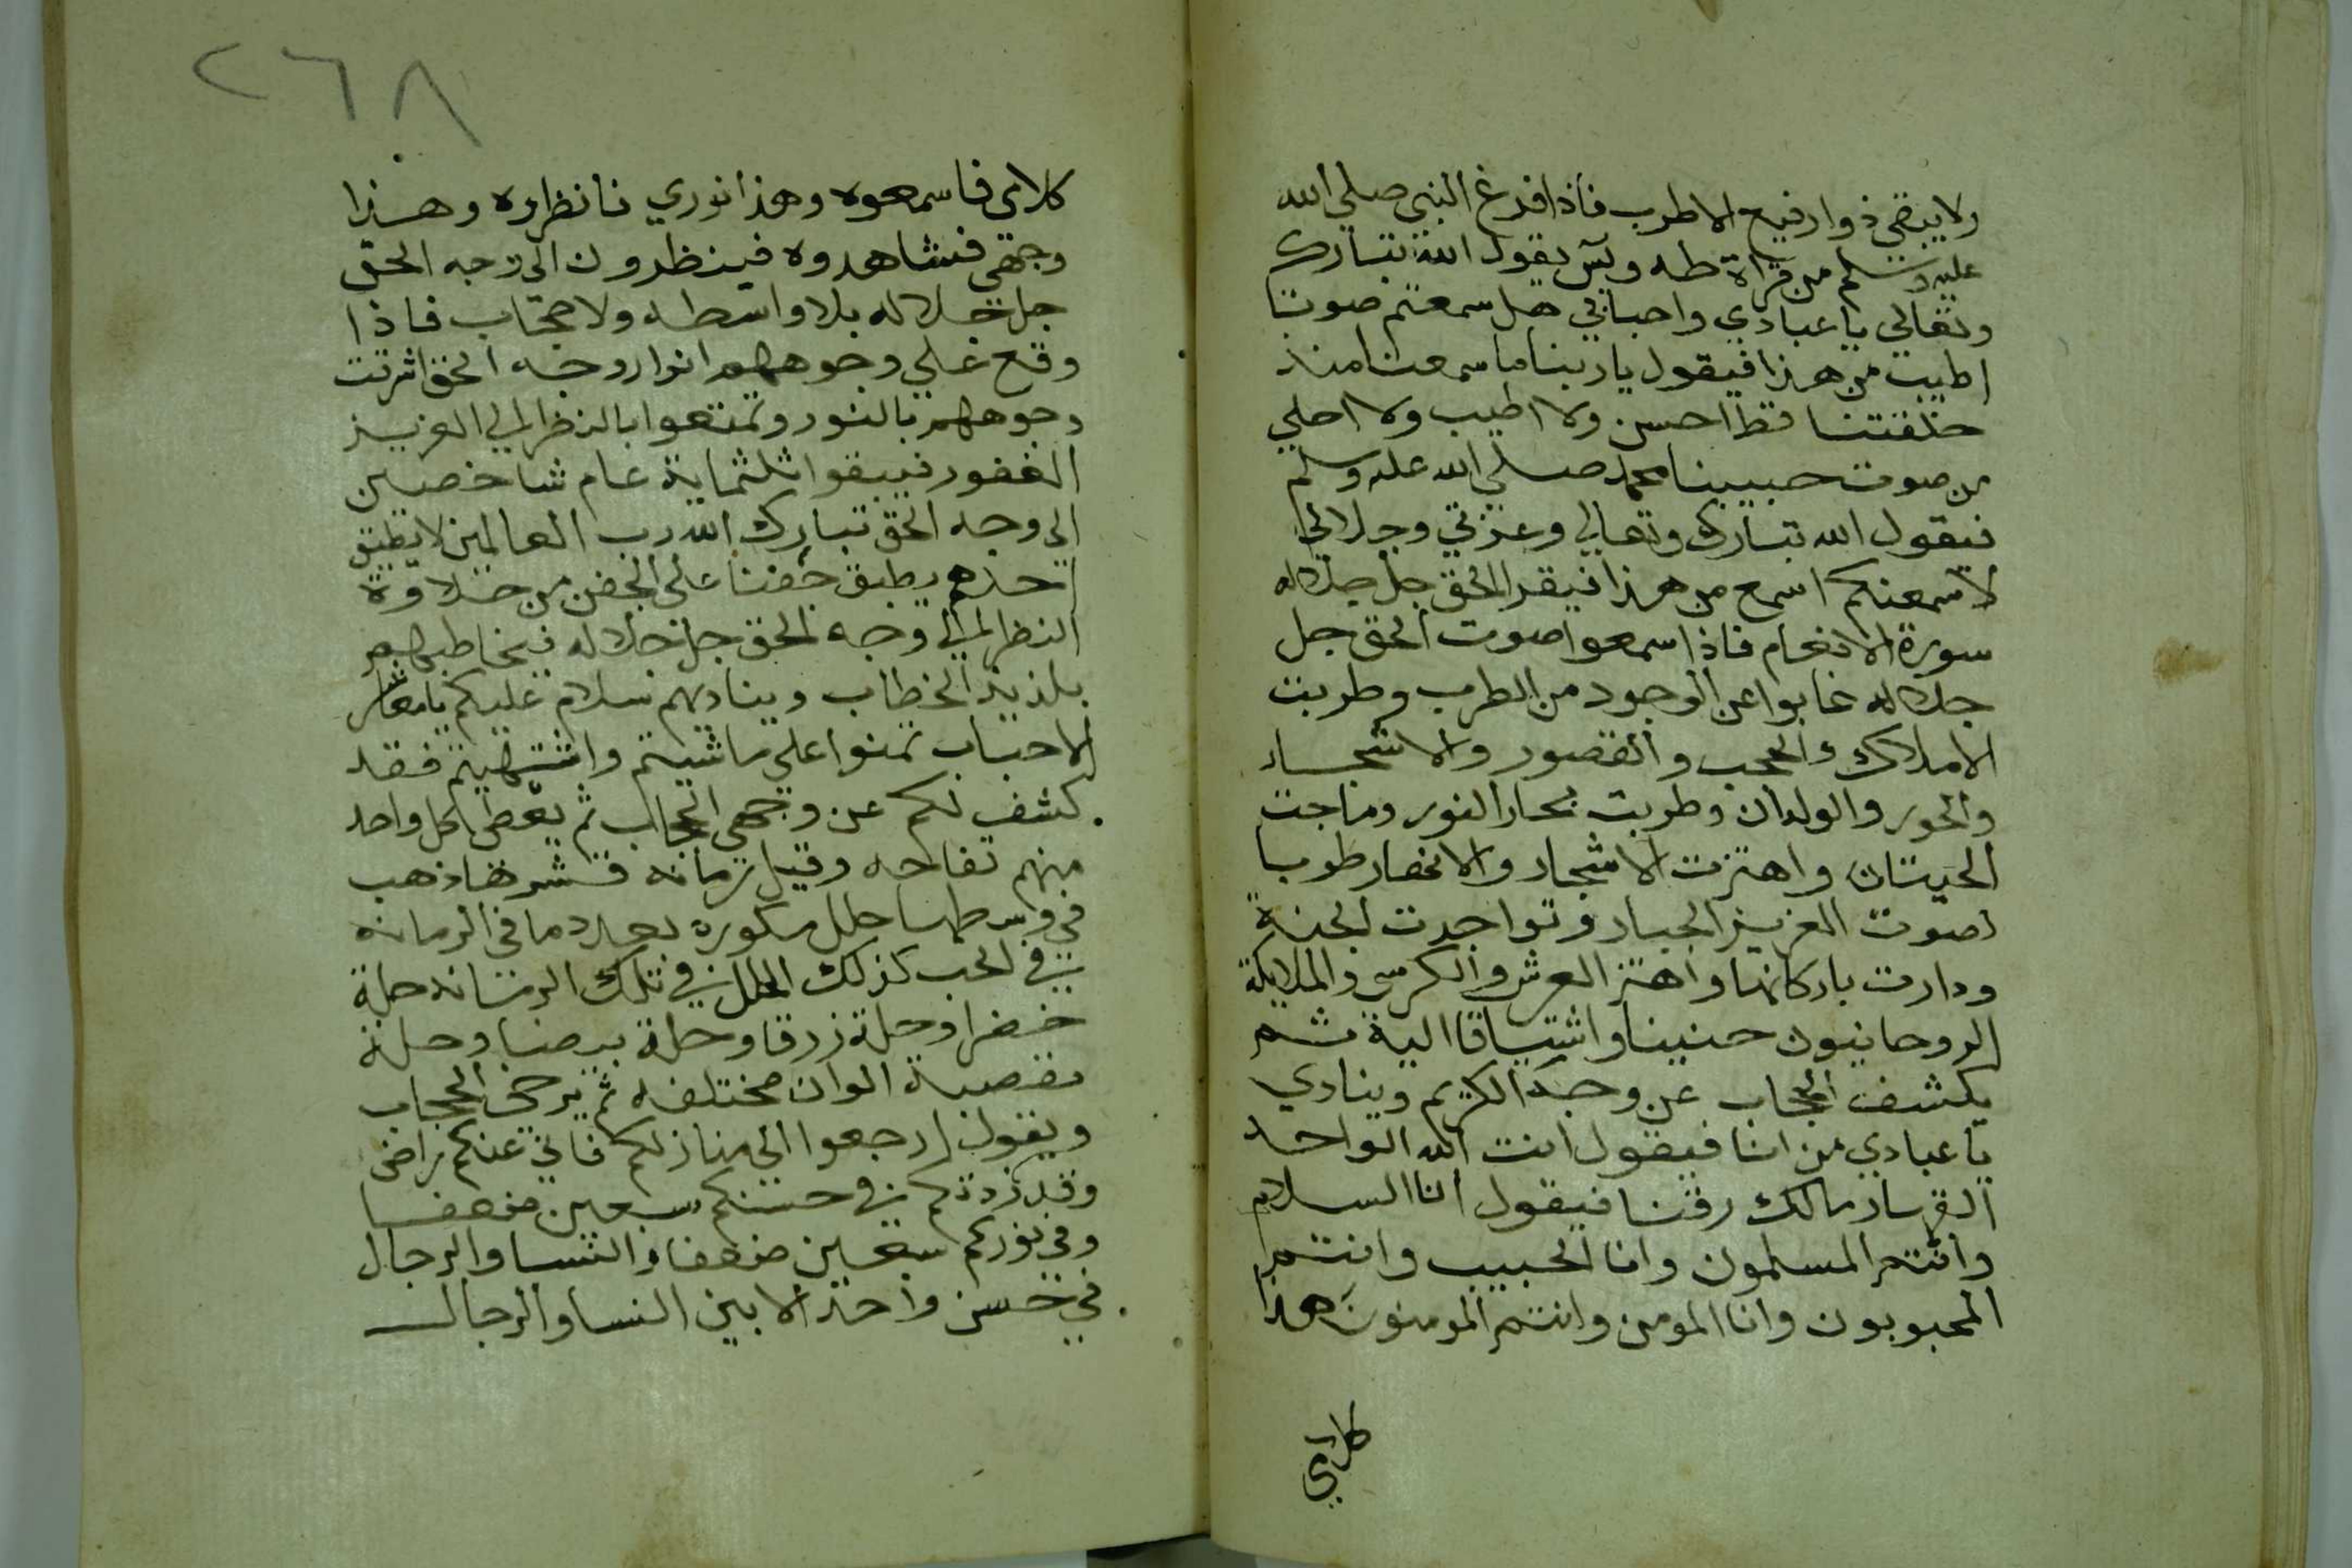 ولا يبقي ذوا رفيع الا طرب فاذا فرغ النبي صلي الله
عليه وسلم من قراة طه ويس يقول الله تبارك
وتعالي يا عبادي واحبابي هل سمعتم صوتا
اطيب من هذا فيقول يا ربنا ما سمعنا منذ
خلقتنا قط احسن ولا اطيب ولا احلي
من صوت حبيبنا محمد صلي الله عليه وسلم
فيقول الله تبارك وتعالي وعزتي وجلالي
لاسمعنكم اسمع من هذا فيقرا الحق جل جلاله
سورة الانعام فاذا سمعوا صوت الحق جل
جلاله غابوا عن الوجود من الطرب وطربت
الاملاك والحجب والقصور والاشجار
والحور والولدان وطربت بحار النور وماجت
الحيتان واهتزت الاشجار والانهار طوبا
لصوت العزيز الجبار وتواجدت الجنة
ودارت باركانها واهتز العرش والكرسي والملايكة
الروحانيون حنينا واشتياقا اليه ثم
يكشف الحجاب عن وجهه الكريم وينادي
يا عبادي من انا فيقول انت الله الواحد
القهار مالك رقنا فيقول انا السلام
وانتم المسلمون وانا الحبيب وانتم
المحبوبون وانا المومن وانتم المومنون هذا
كلامي
٢٦٨
كلامي فاسمعوه وهذا نوري فانظراوه وهذا
وجهي فشاهدوه فينظرون الي وجه الحق
جل جلاله بلا واسطه ولا حجاب فاذا
وقع علي وجوههم انوار وجه الحق اشرقت
وجوههم بالنور وتمتعوا بالنظر الي العزيز
الغفور فيبقوا ثلثماية عام شاخصين
الي وجه الحق تبارك الله رب العالمين لا يطيق
احدهم يطبق جفنا علي الجفن من حلاوة
النظر الي وجه الحق جل جلاله فيخاطبهم
بلذيذ الخطاب ويناديهم سلام عليكم يا معاشر
الاحباب تمنوا علي ما شيتم واشتهيتم فقد
كشف لكم عن وجهي الحجاب ثم يعطي لكل واحد
منهم تفاحه وقيل رمانه قشرها ذهب
في وسطها حلل مكوره بعدد ما في الرمانه
في الحب كذلك الحلل في تلك الرمانه حلة
خضرا وحلة زرقا وحلة بيضا وحلة
مقصبة الوان مختلفه ثم يرخي الحجاب
ويقول ارجعوا الي منازلكم فاني عنكم راضي
وقد زدتكم في حسنكم سبعين ضعفا
وفي نوركم سبعين ضعفا والنسا والرجال
في حسن واحد الا بين النسا والرجال